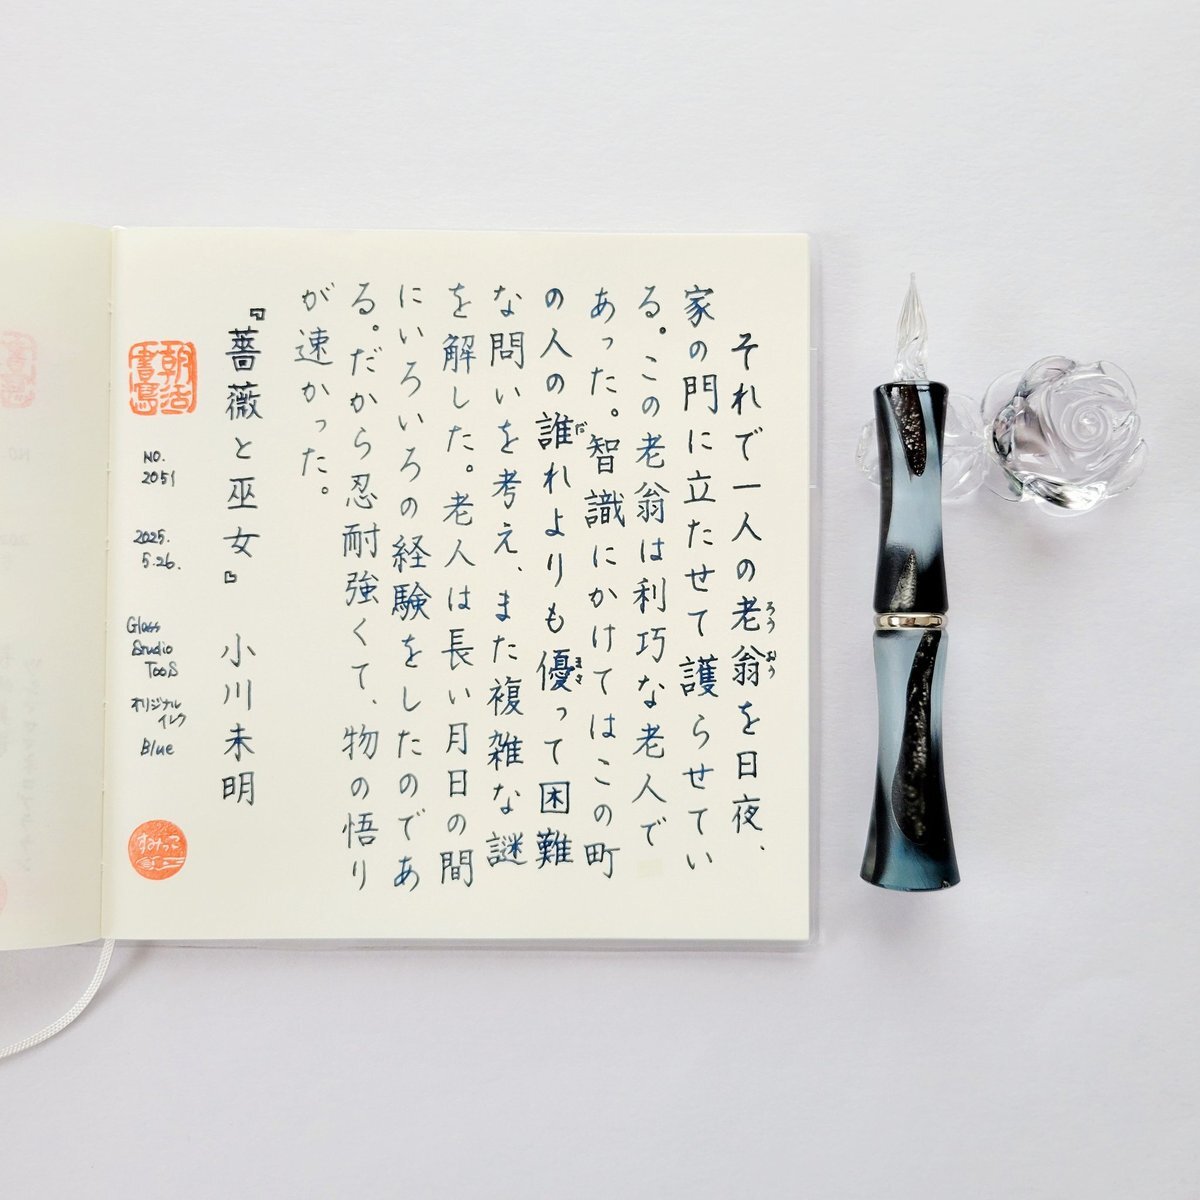 それで一人の老翁を日夜、
ろうおう
家の門に立たせて護らせてい
る。この老翁は利巧な老人で
あった。智識にかけてはこの町
の人の誰れよりも優って困難
だ
まさ
な問いを考え、また複雑な謎
を解した。老人は長い月日の間
にいろいろの経験をしたのであ
る。だから忍耐強くて、物の悟り
が速かった。
『薔薇と巫女』 小川未明
朝活
書写
NO.
2051
2025.
5.26.
Glass
Studio
TooS
オリジナル
インク
Blue
すみっこ